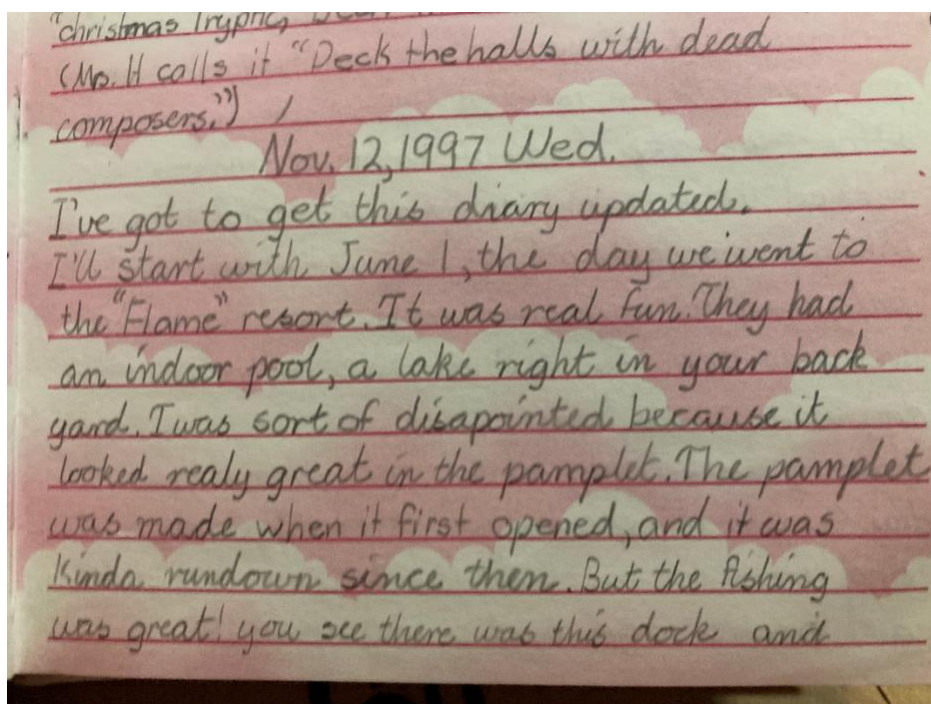 "christmas
(Ms. H calls it "Deck the halls with dead
composers.")
Nov. 12, 1997 Wed.
I've got to get this diary updated.
I'll start with June 1, the day we went to
the "Flame" resort. It was real fun. They had
an indoor pool, a lake right in your back
yard. I was sort of disapointed because it
looked realy great in the pamplet. The pamplet
was made when it first opened, and it was
kinda rundown since then. But the fishing
was great! you see there was this dock and